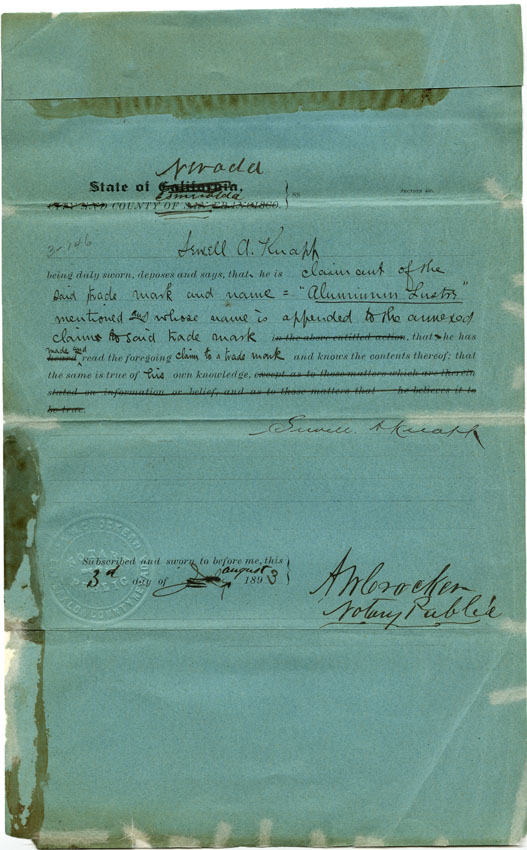 Nevada
State of California,
Esmeralda
CITY AND COUNTY OF SAN FRANCISCO. } SS
3-146
Sewell A. Knapp
being duly sworn, deposes and says, that he is claimant of the
said trade mark and name = "Aluminum Lustre"
mentioned and whose name is appended to the annexed
claim to said trade mark in the above entitled action, that he has
made and
heard read the foregoing claim to a trade mark and knows the contents thereof; that
the same is true of his own knowledge, except as to those matters which are therein
stated on information or belief, and as to those matters that he believes it to
be true.
Sewell A Knapp
Subscribed and sworn to before me, this
3rd day of August 1893
A W Crocker
Notary Public